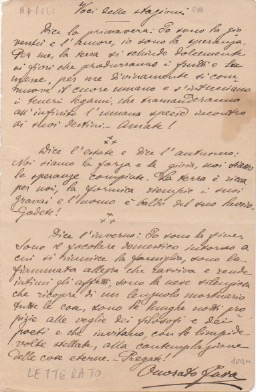 APRILI
Voci delle stagioni
Dice la primavera: Io sono la gio
ventù e l'amore, io sono la speranza.
Per me, la terra si schiude dolcemente
ai fiori che produrranno i frutti e le
messe, per me divinamente si com
muove il cuore umano e s'intrecciano
i teneri legami, che tramanderanno
all'infinito l'umana specie incontro
ai suoi destini. Amate!
Dice l'estate e dice l'autunno:
Noi siamo la forza e la gioia, noi siamo
le speranze compiute. La terra è ricca
per noi, la formica riempie i suoi
granai e l'uomo è baldo del suo lavoro.
Godete!
Dice l'inverno: Io sono la
Sono il focolare domestico intorno a
cui si riunisce la famiglia, sono la
fiammata allegra che ravviva e rende
intimi gli affetti, sono la neve silenziosa
che ricopre di un lenzuolo mortuario
tutte le cose, sono le lunghe notti pro
pizie alle veglie dei filosofi e dei
poeti e che invitano, con le
volte stellate, alla contemplazione
delle cose eterne. Pregate!
Onorato
LETTERATO